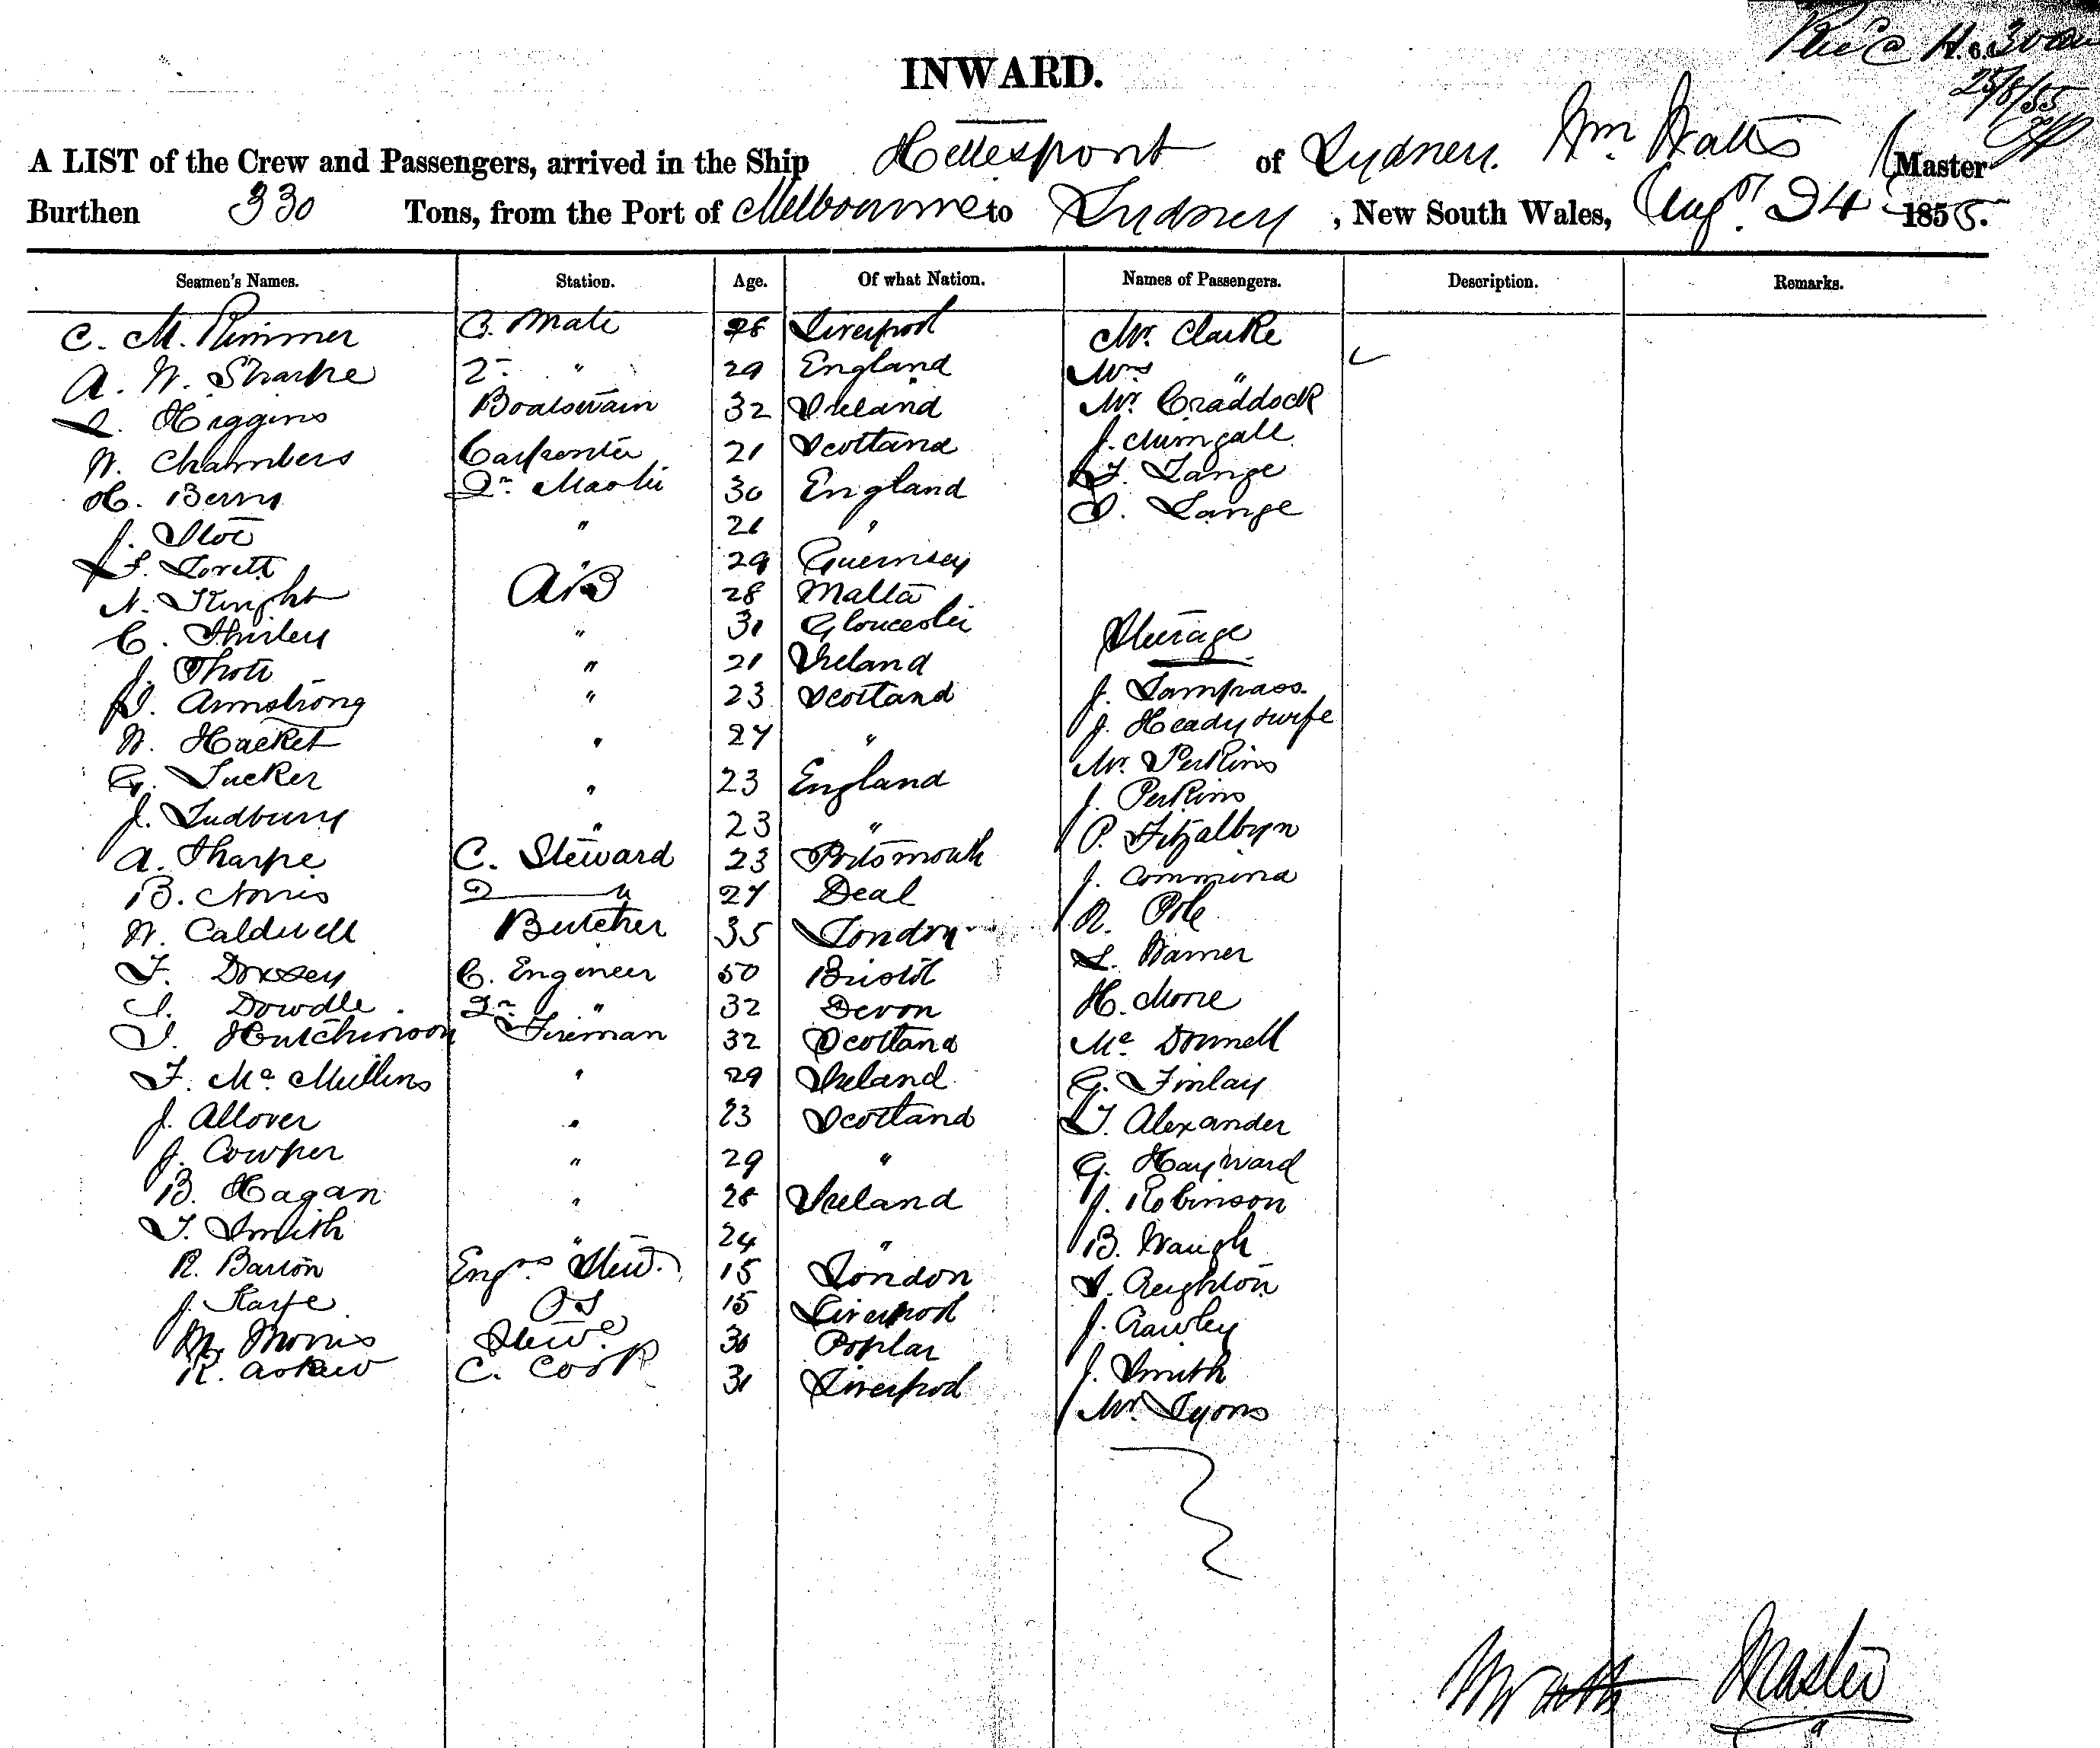 INWARD.
25/8/55
A LIST of the Crew and Passengers, arrived in the Ship Hellespont of Sydney. Wm. Watts Master
Burthen 330 Tons, from the Port of Melbourne to Sydney, New South Wales, Augst. 24 1855.
Seamen's Names. Station. Age. Of what Nation. Names of Passengers. Description. Remarks.
C. M. Rimmer C. Mate 28 Liverpool Mr. Clarke
A. W. Sharpe 2 " 29 England Mrs "
Higgins Boatswain 32 Ireland Mr. Craddock
W. Chambers Carpenter 21 Scotland J.
H. Berry Qr. Master 30 England Lange
J. " 21 " Lange
Lovett " 29 Guernsey
N. Knight AB 28 Malta
C. Shirley " 31 Gloucester Steerage
J. " 21 Ireland J. Lampass
Armstrong " 23 Scotland J. Heady & wife
W. Hacket " 27 " Mr. Perkins
G. Tucker " 23 England J. Perkins
J. Sudbury " 23 " P. Fitzalbyn
A. Sharpe C. Steward 23 Portsmouth J.
B. Norris 2 " 27 Deal R. Pole
W. Caldwell Butcher 35 London Warner
T. Dorsey C. Engineer 50 Bristol H. Moore
Dowdle 2n " 32 Devon Mc. Donnell
Hutchinson Fireman 32 Scotland G. Finlay
T. Mc. Mullins " 29 Ireland T. Alexander
J. Allover " 23 Scotland G. Hayward
J. Cowper " 29 " J. Robinson
B. Hagan " 28 Ireland B. Waugh
T. Smith " 24 " Creighton
R. Barron Engrs Stewd. 15 London J. Crawley
J. OS 15 Liverpool J. Smith
M. Morris Stewd 30 Poplar Mr. Lyons
R. Askew C. Cook 31 Liverpool
W Watts Master